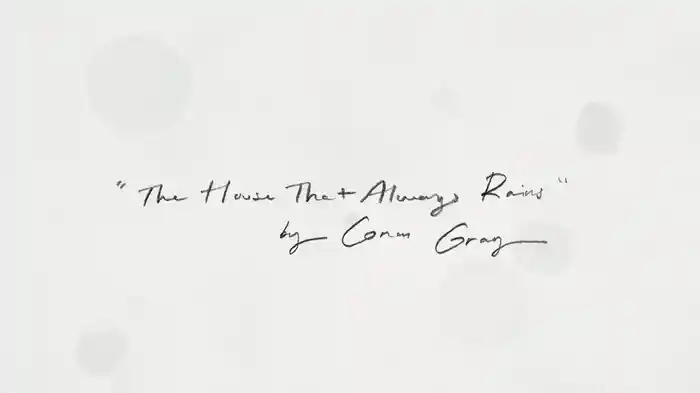 "The House That Always Rains"
by Conan Gray